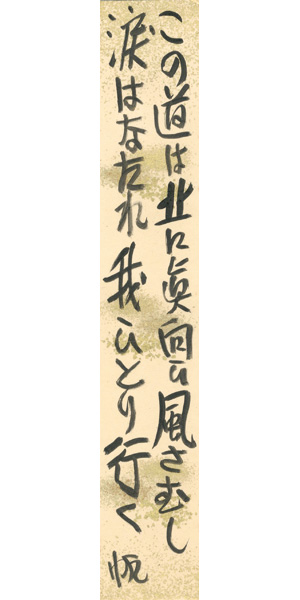 この道は北に眞向ひ風さむし
涙はなたれ我ひとり行く